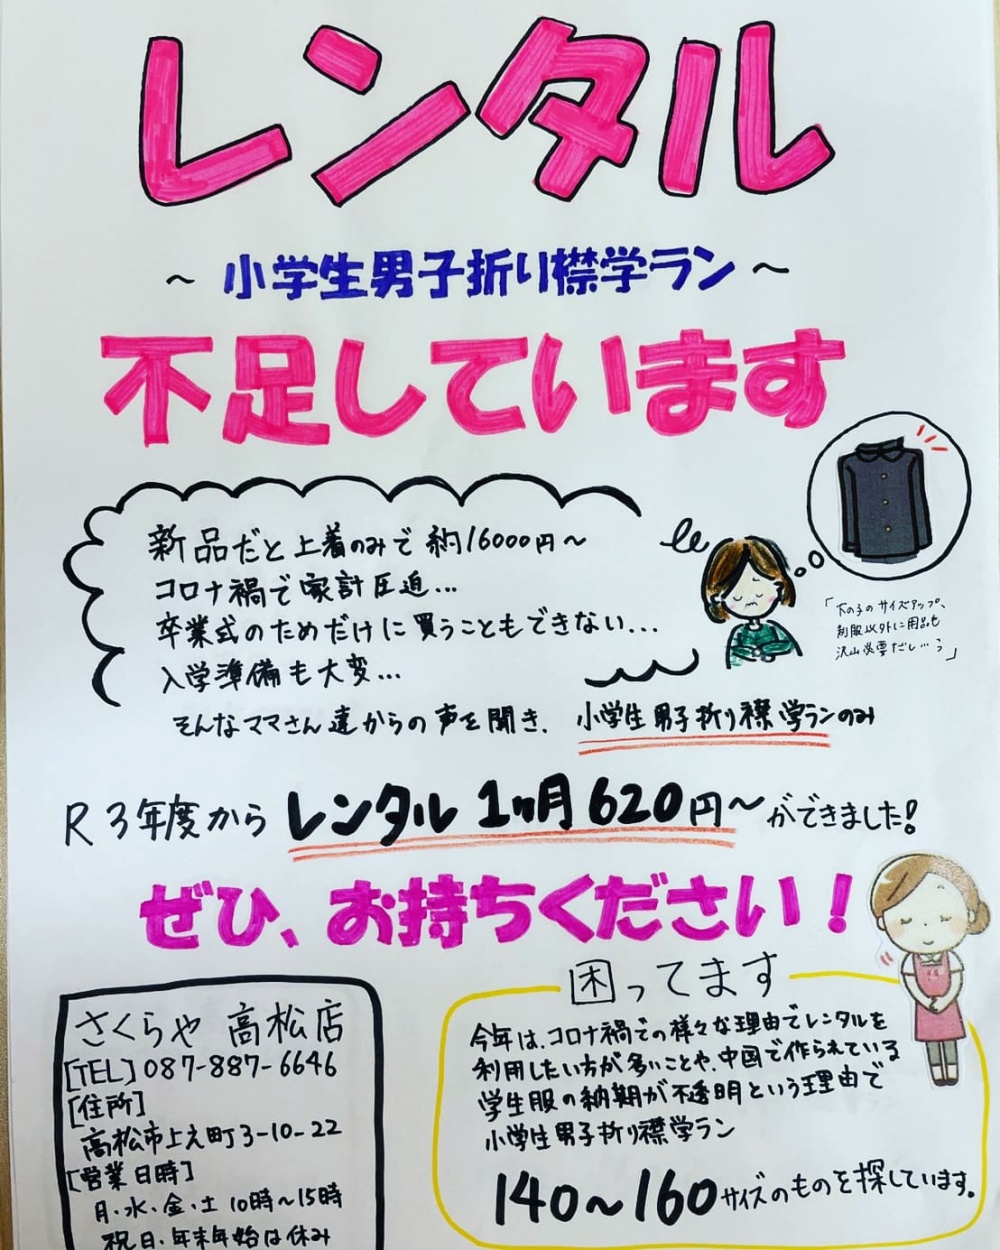 レンタル
～小学生男子折り襟学ラン～
不足しています
新品だと上着のみで約16000円～
コロナ禍で家計圧迫...
卒業式のためだけに買うこともできない...
入学準備も大変...
「下の子のサイズアップ、
制服以外に用品も
沢山必要だし…う」
そんなママさん達からの声を聞き、小学生男子折り襟学ランのみ
R3年度からレンタル1ヶ月620円～ができました!
ぜひ、お持ちください!
さくらや 高松店
[TEL] 087-887-6646
[住所]
高松市上之町3-10-22
[営業日時]
月・水・金・土 10時～15時
祝日・年末年始は休み
困ってます
今年は、コロナ禍での様々な理由でレンタルを
利用したい方が多いことや、中国で作られている
学生服の納期が不透明という理由で
小学生男子折り襟学ラン
140～160サイズのものを探しています。